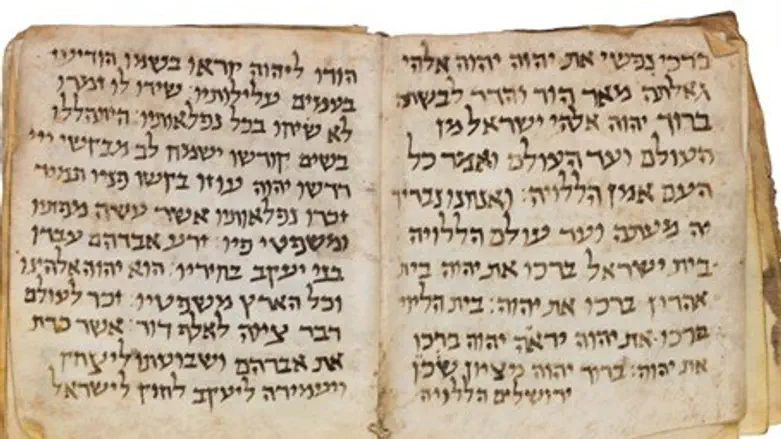 ברכי נפשי את יהוה יהוה אלהי
גדלתה מאד הוד והדר לבשת
ברוך יהוה אלהי ישראל מן
העולם ועד העולם ואמר כל
העם אמן הללויה: ואנחנו נברך
יה מעתה ועד עולם הללויה
בית ישראל ברכו את יהוה בית
אהרון ברכו את יהוה: בית הלוי
ברכו את יהוה יראי יהוה ברכו
את יהוה: ברוך יהוה מציון שכן
ירושלים הללויה
הודו ליהוה קראו בשמו הודיעו
בעמים עלילותיו: שירו לו זמרו
לו שיחו בכל נפלאותיו: היתהללו
בשים קודשו ישמח לב מבקשי ייי
דרשו יהוה עוזו בקשו פניו תמיד
זכרו נפלאותיו אשר עשה מפתיו
ומשפטי פיו: זרע אברהם עבדו
בני יעקב בחיריו: הוא יהוה אלהינו
וכל הארץ משפטיו: זכר לעולם
דבר ציוה לאלף דור: אשר כרת
את אברהם ושבועתו ליצחק
ויעמידה ליעקב לחוק לישראל